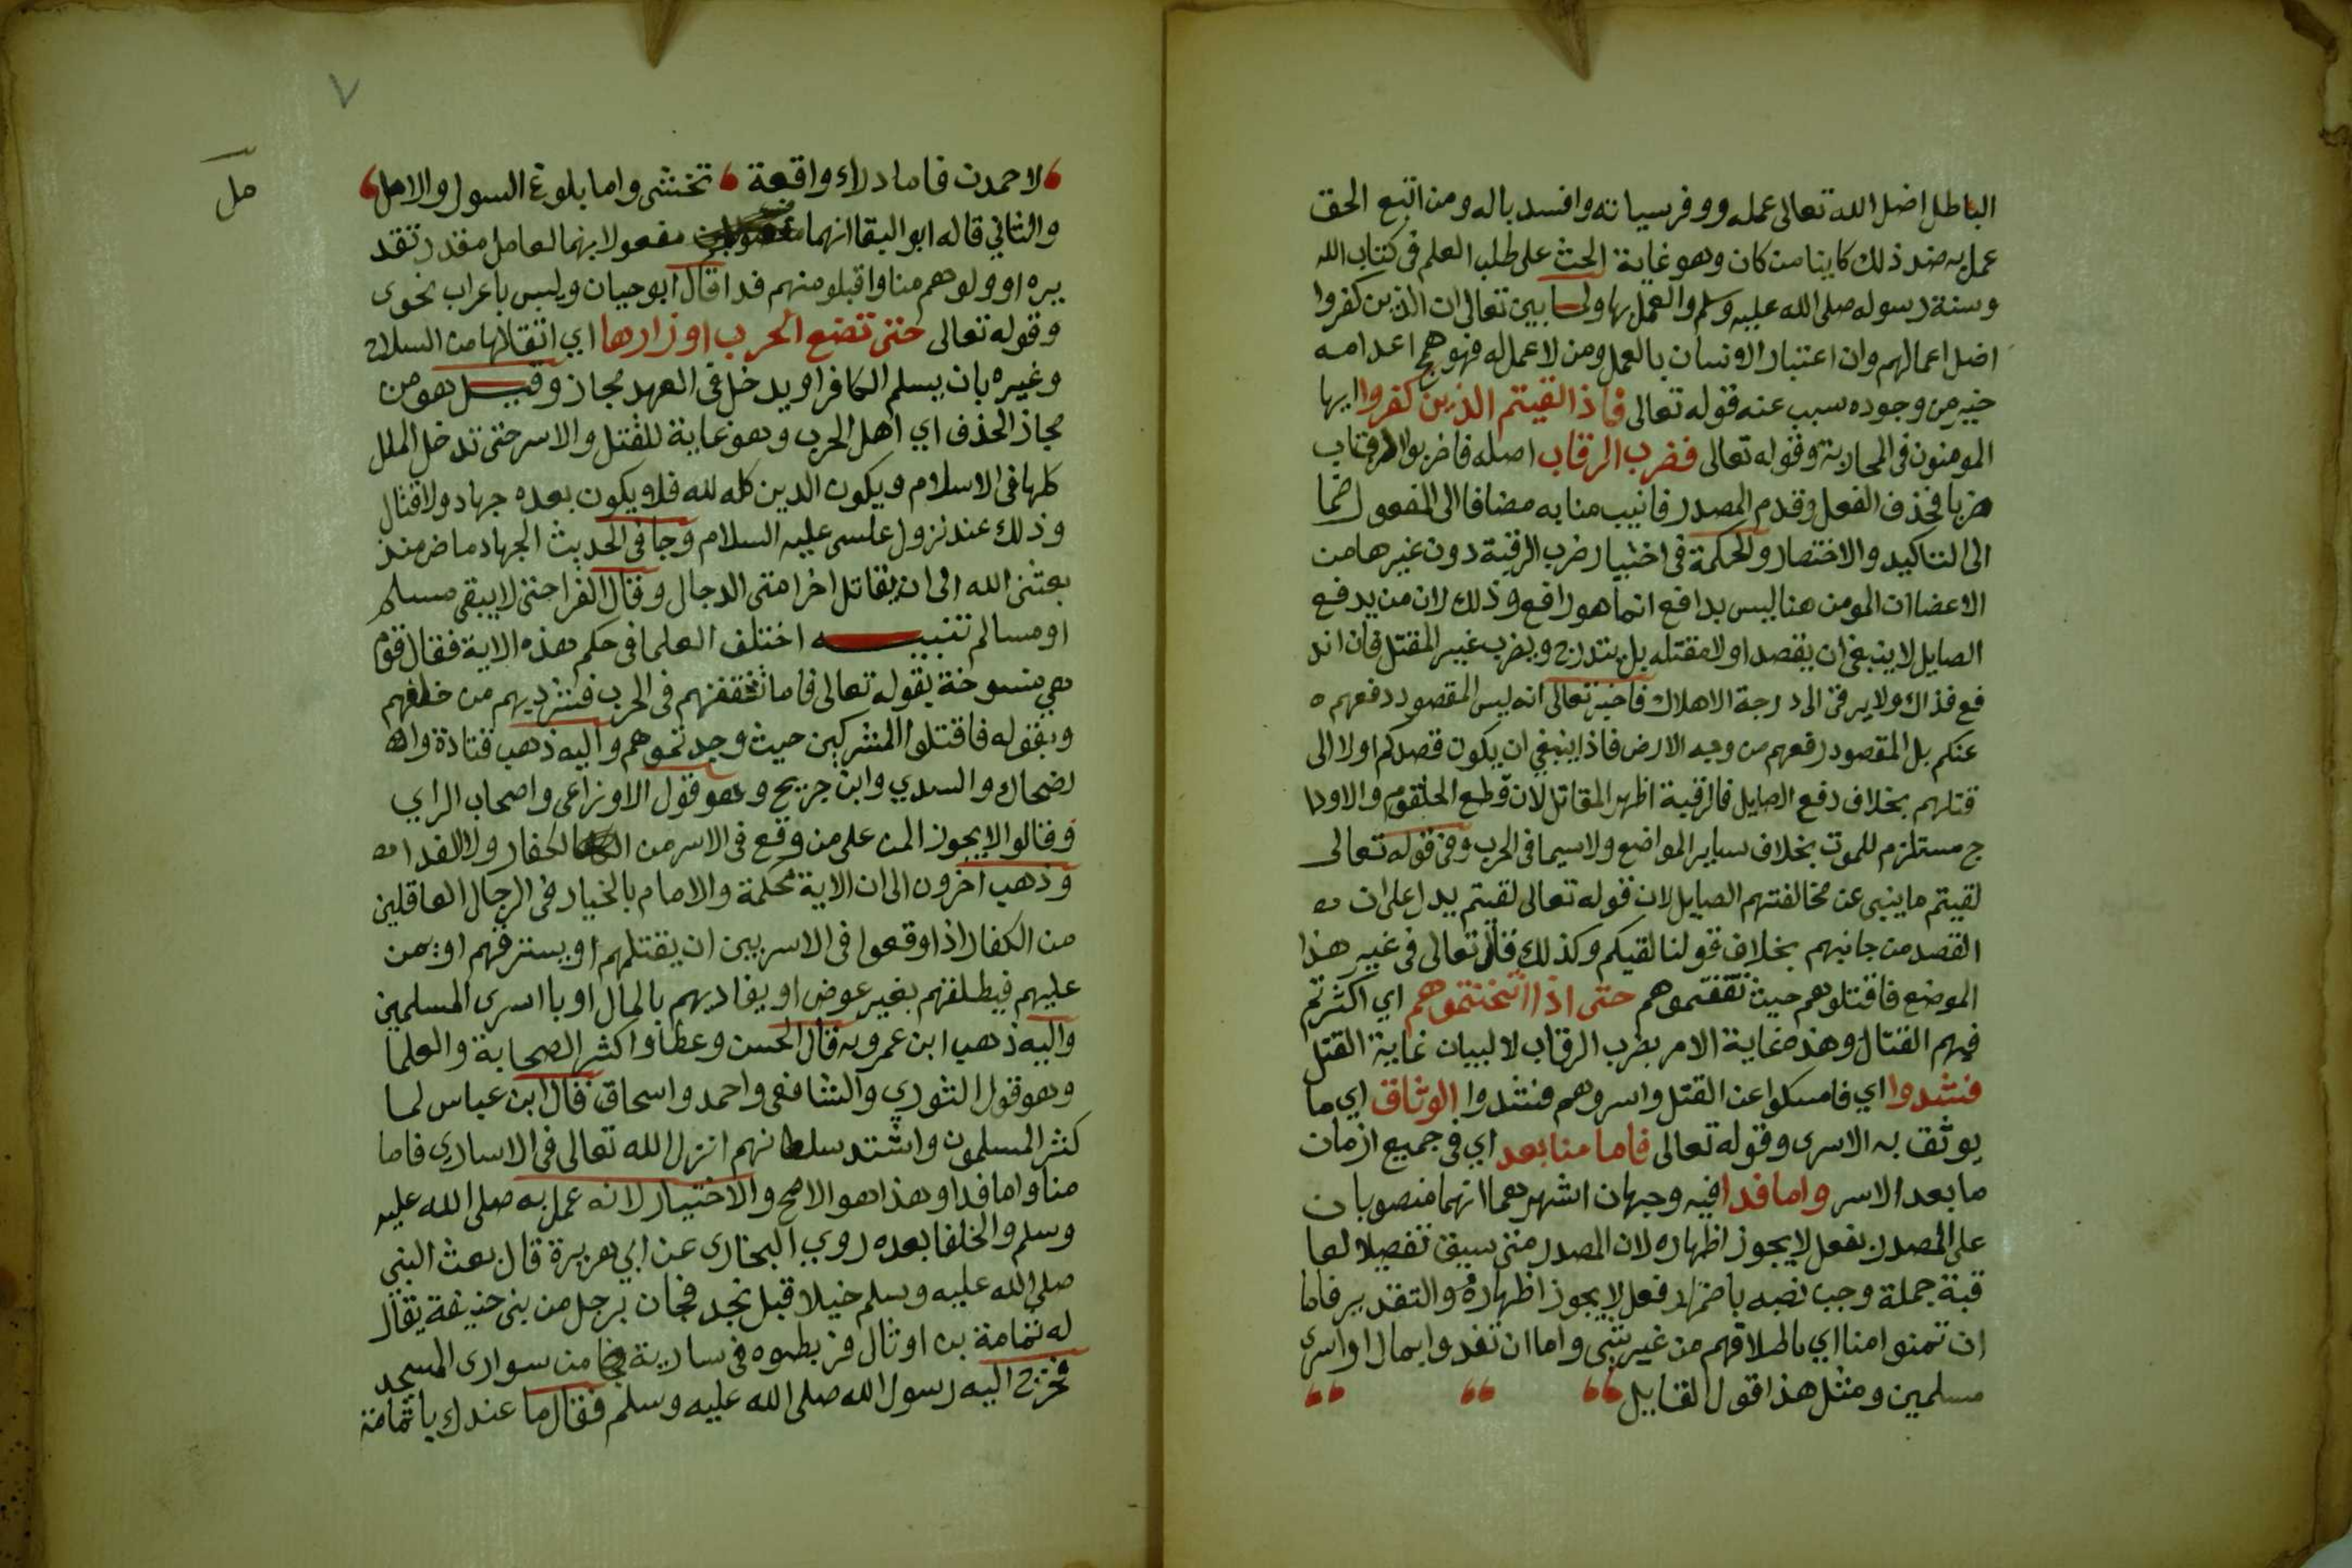 الباطل اضل الله تعالى عمله ووفر سياته وافسد باله ومن اتبع الحق
عمل به ضد ذلك كاينا من كان وهو غاية الحث على طلب العلم فى كتاب الله
وسنة رسوله صلى الله عليه وسلم والعمل بها ولما بين تعالى ان الذين كفروا
اضل اعمالهم وان اعتبار الانسان بالعمل ومن لا عمل له فهو همج اعدامه
خير من وجوده سبب عنه قوله تعالى فاذا لقيتم الذين كفروا ايها
المومنون فى المحاربة وقوله تعالى فضرب الرقاب اصله فاضربوا الرقاب
ضربا فحذف الفعل وقدم المصدر فانيب منابه مضافا الى المفعول ضما
الى التاكيد والاختصار والحكمة فى اختيار ضرب الرقبة دون غيرها من
الاعضا ان المومن هنا ليس بدافع انما هو رافع وذلك لان من يدفع
الصايل لا ينبغى ان يقصد اولا مقتله بل يتدرج ويضرب غير المقتل فان اند
فع فذاك ولا يرقى الى درجة الاهلاك فاخبر تعالى انه ليس المقصود دفعهم ه
عنكم بل المقصود رفعهم من وجه الارض فاذا ينبغي ان يكون قصدكم اولا الى
قتلهم بخلاف دفع الصايل فالرقبة اظهر المقاتل لان قطع الحلقوم والاودا
ج مستلزم للموت بخلاف ساير المواضع ولاسيما فى الحرب وفى قوله تعالى
لقيتم ما ينبى عن مخالفتهم الصايل لان قوله تعالى لقيتم يدل على ان
القصد من جانبهم بخلاف قولنا لقيكم وكذلك قال تعالى فى غير هذا
الموضع فاقتلوهم حيث ثقفتموهم حتى اذا اثخنتموهم اي اكثرتم
فيهم القتال وهذه غاية الامر بضرب الرقاب لا لبيان غاية القتل
فشدوا اي فامسكوا عن القتل واسروهم فشدوا الوثاق اي ما
يوثق به الاسرى وقوله تعالى فاما منا بعد اي فى جميع ازمان
ما بعد الاسر واما فدا فيه وجهان اشهرهما انهما منصوبان
على المصدر بفعل لا يجوز اظهاره لان المصدر متى سيق تفصيلا لعا
قبة جملة وجب نصبه باضمار فعل لا يجوز اظهاره والتقدير فاما
ان تمنوا منا اي باطلاقهم من غير شى واما ان تفدوا بمال او اسرى
مسلمين ومثل هذا قول القايل
٧
لاحمدن فاما دراء واقعة تخشى واما بلوغ السول والامل
مل
والثاني قاله ابو البقا انهما مفعولا بهما لعامل مقدر تقد
يره اوولوهم منا واقبلو منهم فدا قال ابو حيان وليس باعراب نحوى
وقوله تعالى حتى تضع الحرب اوزارها اي اثقالها من السلاح
وغيره بان يسلم الكافر او يدخل فى العهد مجاز وقيل هو من
مجاز الحذف اي اهل الحرب وهو غاية للقتل والاسر حتى تدخل الملل
كلها فى الاسلام ويكون الدين كله لله فلا يكون بعده جهاد ولا قتال
وذلك عند نزول عليسى عليه السلام وجا فى الحديث الجهاد ماض منذ
بعثنى الله الى ان يقاتل اخر امتى الدجال وقال الفرا حتى لا يبقى مسلم
او مسالم تنبيه اختلف العلما فى حكم هذه الاية فقال قوم
هى منسوخة بقوله تعالى فاما تثقفنهم فى الحرب فشرد بهم من خلفهم
وبقوله فاقتلوا المشركين حيث وجدتموهم واليه ذهب قتادة وال
ضحاك والسدي وابن جريج وهو قول الاوزاعى واصحاب الراي
وقالوا لا يجوز المن على من وقع فى الاسر من الكفار ولا الفدا
وذهب اخرون الى ان الاية محكمة والامام بالخيار فى الرجال العاقلين
من الكفار اذا وقعوا فى الاسر بين ان يقتلهم او يسترقهم او يمن
عليهم فيطلقهم بغير عوض او يفاديهم بالمال او باسرى المسلمين
واليه ذهب ابن عمر وبه قال الحسن وعطا واكثر الصحابة والعلما
وهو قول الثوري والشافعى واحمد واسحاق قال ابن عباس لما
كثر المسلمون واشتد سلطانهم انزل الله تعالى فى الاسارى فاما
منا واما فدا وهذا هو الاصح والاختيار لانه عمل به صلى الله عليه
وسلم والخلفا بعده روي البخارى عن ابي هريرة قال بعث النبي
صلى الله عليه وسلم خيلا قبل نجد فجات برجل من بنى حنيفة يقال
له ثمامة بن اوثال فربطوه فى سارية من سوارى المسجد
فخرج اليه رسول الله صلى الله عليه وسلم فقال ما عندك يا ثمامة